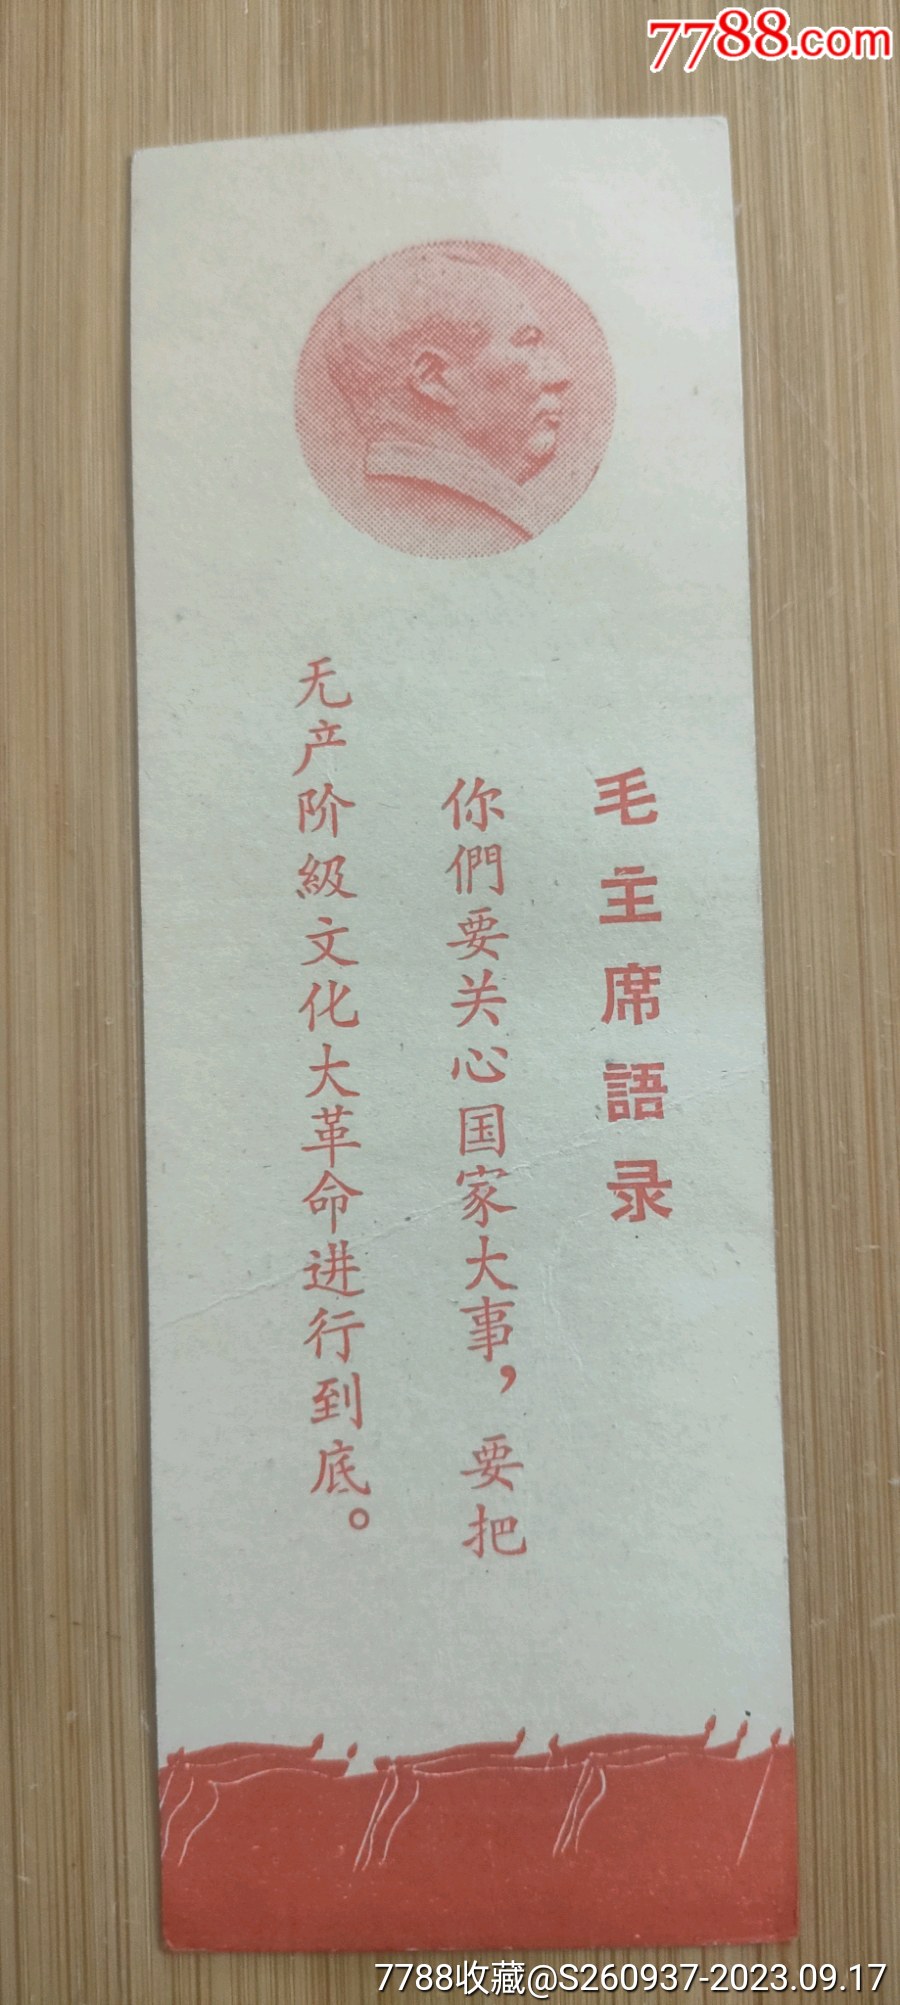 7788.com
毛主席語录
你們要关心国家大事，要把
无产阶級文化大革命进行到底。
7788收藏@S260937-2023.09.17